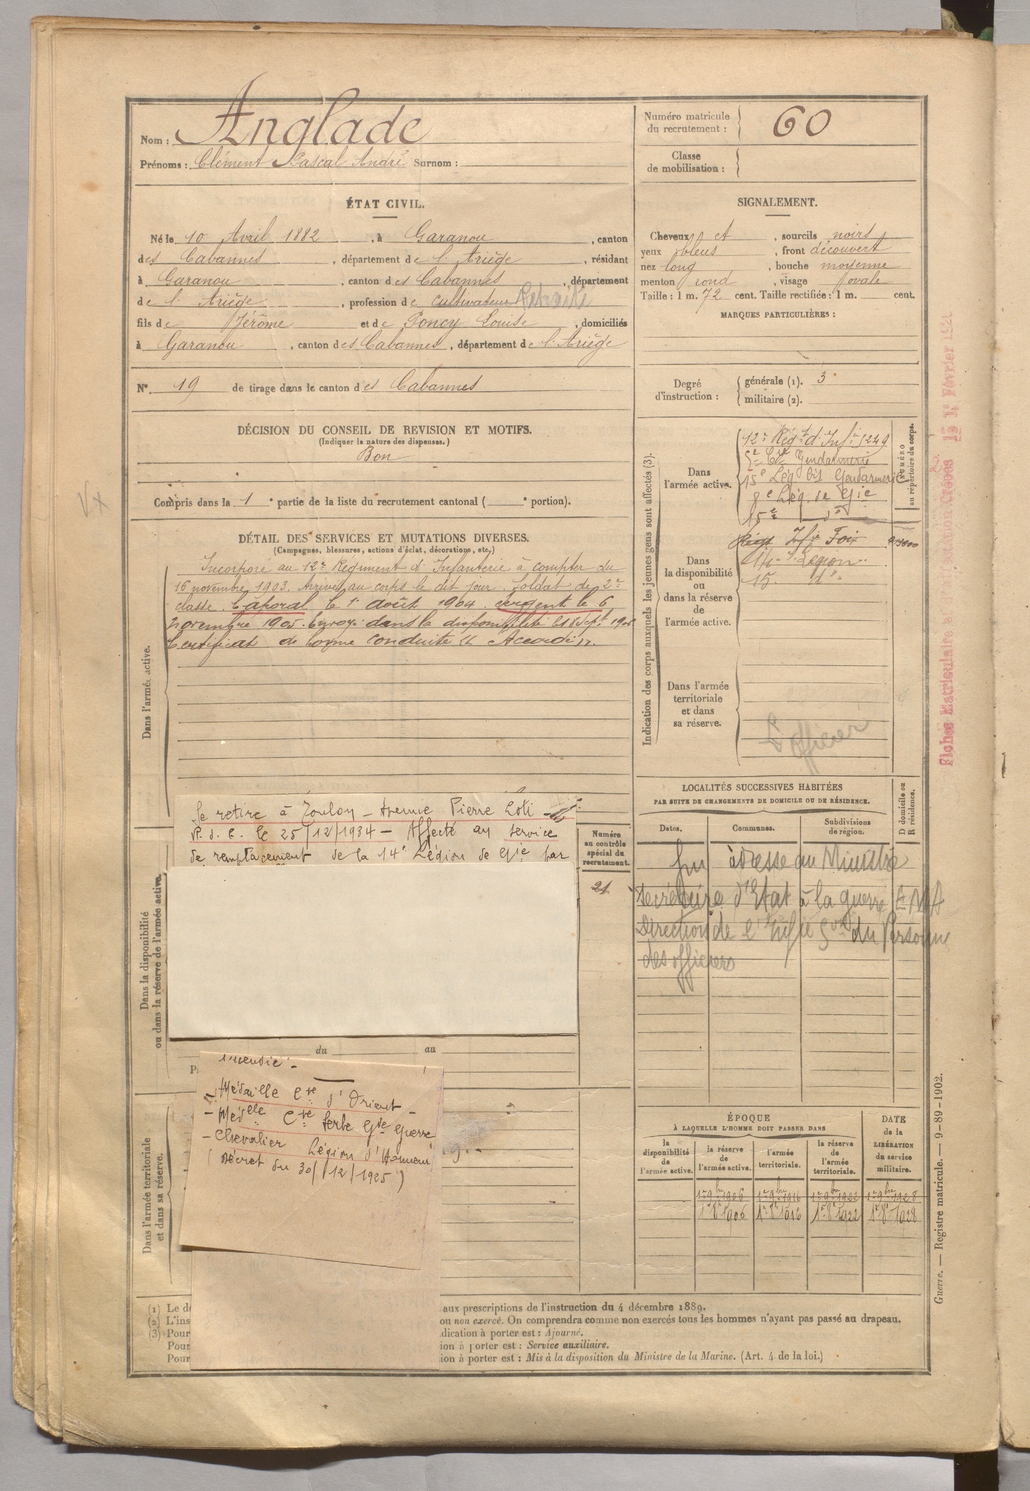 Nom : Anglade
Prénoms : Clément Pascal André Surnom :
Numéro matricule du recrutement : 60
Classe de mobilisation :
ÉTAT CIVIL.
Né le 10 Avril 1882, à Garanou, canton
des Cabannes, département de l'Ariège, résidant
à Garanou, canton des Cabannes, département
de l'Ariège, profession de cultivateur Retraité
fils de Jérôme et de Poncy Louise, domiciliés
à Garanou, canton des Cabannes, département de l'Ariège
N° 19 de tirage dans le canton des Cabannes
SIGNALEMENT.
Cheveux et, sourcils noirs
yeux bleus, front découvert
nez long, bouche moyenne
menton rond, visage ovale
Taille : 1 m. 72 cent. Taille rectifiée : 1 m. cent.
MARQUES PARTICULIÈRES :
Degré d'instruction : générale (1). 3
militaire (2).
DÉCISION DU CONSEIL DE REVISION ET MOTIFS.
(Indiquer la nature des dispenses.)
Bon
Compris dans la 1e partie de la liste du recrutement cantonal ( e portion).
DÉTAIL DES SERVICES ET MUTATIONS DIVERSES.
(Campagnes, blessures, actions d'éclat, décorations, etc.)
Dans l'armée active.
Incorporé au 12e Régiment d'Infanterie à compter du
16 novembre 1903. Arrivé au corps le dit jour. Soldat de 2e
classe. Caporal le 1er août 1904. Sergent le 6
novembre 1905. Envoyé dans la disponibilité le 18 Sept 1906
Certificat de bonne conduite « Accordé ».
Dans la disponibilité ou dans la réserve de l'armée active.
Se retire à Toulon - Avenue Pierre Loti
R.d.C. le 25/12/1934 - Affecté au service
de remplacement de la 14e Légion de Gie par
du au
incendie. -
- Médaille Cve d'Orient -
- Médlle Cve Serbe Gde Guerre
- Chevalier Légion d'Honneur
(Décret du 30/12/1925)
Dans l'armée territoriale et dans sa réserve.
Numéro au contrôle spécial du recrutement.
21
Indication des corps auxquels les jeunes gens sont affectés (3).
NUMÉRO au répertoire du corps.
Dans l'armée active.
12e Régt d'Infie 1249
5e Cie Gendarmerie
15e Lég bis Gendarmerie
8e Lég de Gie
15e do
Dans la disponibilité ou dans la réserve de l'armée active.
Régt Infie Foix
14e Légion
15 do
Dans l'armée territoriale et dans sa réserve.
Officier
LOCALITÉS SUCCESSIVES HABITÉES
PAR SUITE DE CHANGEMENTS DE DOMICILE OU DE RÉSIDENCE.
Dates. Communes. Subdivisions de région. D domicile ou R résidence.
adresse au Ministre
Secrétaire d'Etat à la guerre EMA
Direction de l'Infie du Personnel
des officiers
ÉPOQUE
À LAQUELLE L'HOMME DOIT PASSER DANS
la disponibilité de l'armée active. la réserve de l'armée active. l'armée territoriale. la réserve de l'armée territoriale. DATE de la LIBÉRATION du service militaire.
1er 9bre 1906 1er 9bre 1916 1er 9bre 1922 1er 9bre 1928
1er 8bre 1906 1er 8bre 1916 1er 8bre 1922 1er 8bre 1928
Guerre. — Registre matricule. — 9-89-1902.
(1) Le d
aux prescriptions de l'instruction du 4 décembre 1889.
(2) L'ins
ou non exercé. On comprendra comme non exercés tous les hommes n'ayant pas passé au drapeau.
(3) Pour
dication à porter est : Ajourné.
Pour
ion à porter est : Service auxiliaire.
Pour
ion à porter est : Mis à la disposition du Ministre de la Marine. (Art. 4 de la loi.)